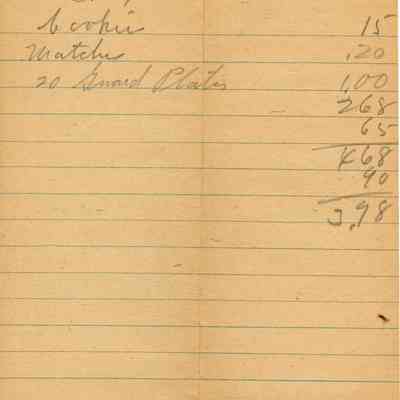 Cookies 15
Matches .20
20 Plates 1,00
268
65
468
90
3,98